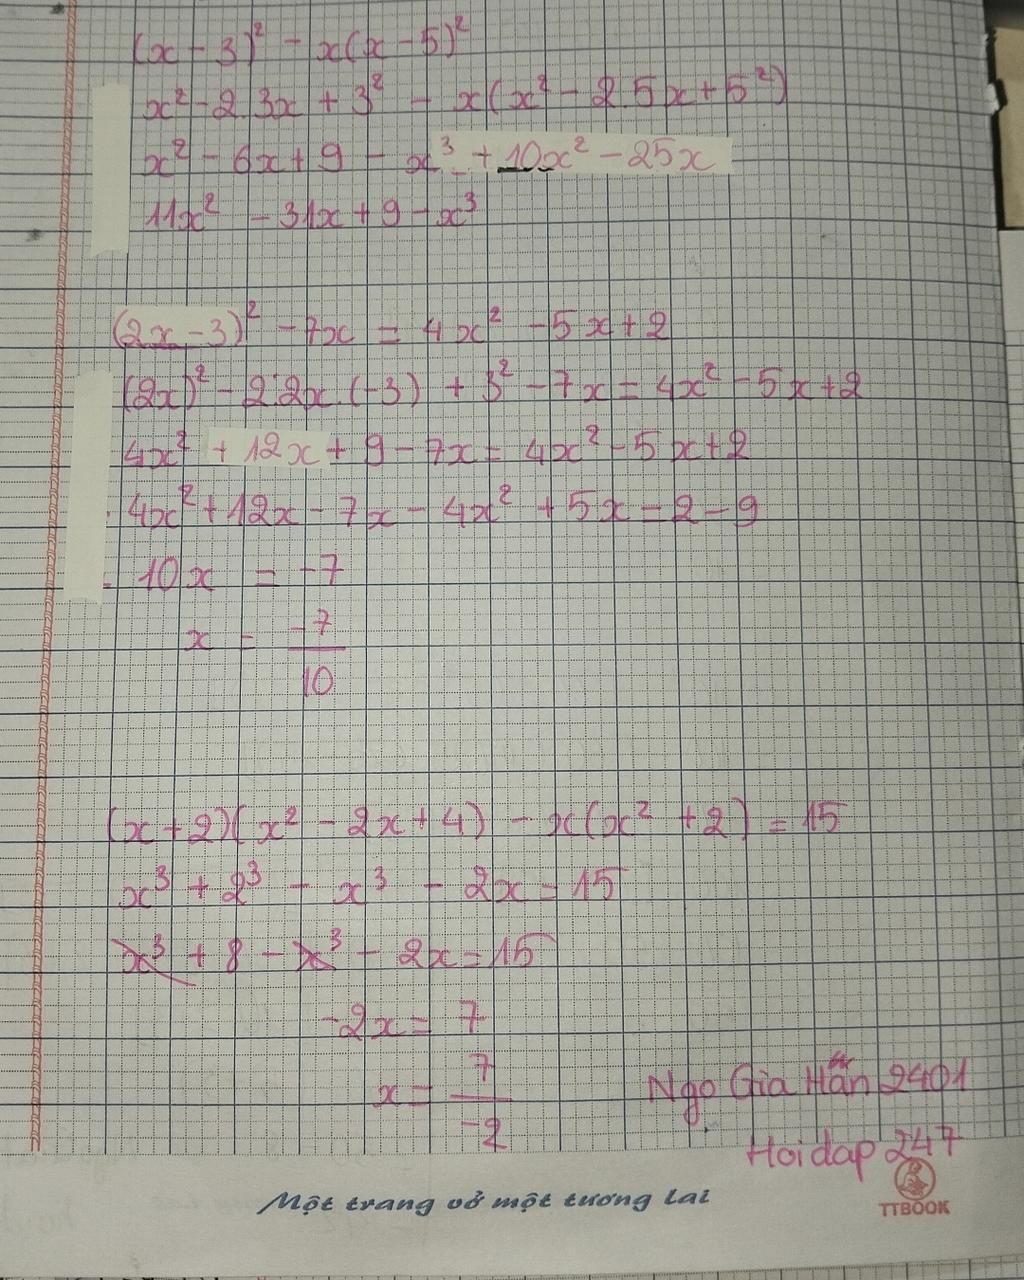 (x - 3)² - x(x - 5)²
x² - 2.3x + 3² - x(x² - 2.5x + 5²)
x² - 6x + 9 - x³ + 10x² - 25x
11x² - 31x + 9 - x³
(2x - 3)² - 7x = 4x² - 5x + 2
(2x)² - 2.2x.(-3) + 3² - 7x = 4x² - 5x + 2
4x² + 12x + 9 - 7x = 4x² - 5x + 2
4x² + 12x - 7x - 4x² + 5x = 2 - 9
10x = -7
x = -7/10
(x + 2)(x² - 2x + 4) - x(x² + 2) = 15
x³ + 2³ - x³ - 2x = 15
x³ + 8 - x³ - 2x = 15
-2x = 7
x = 7/-2
Ngo Gia Hân 2401
Hoidap 247
Một trang vở một tương lai
TTBOOK